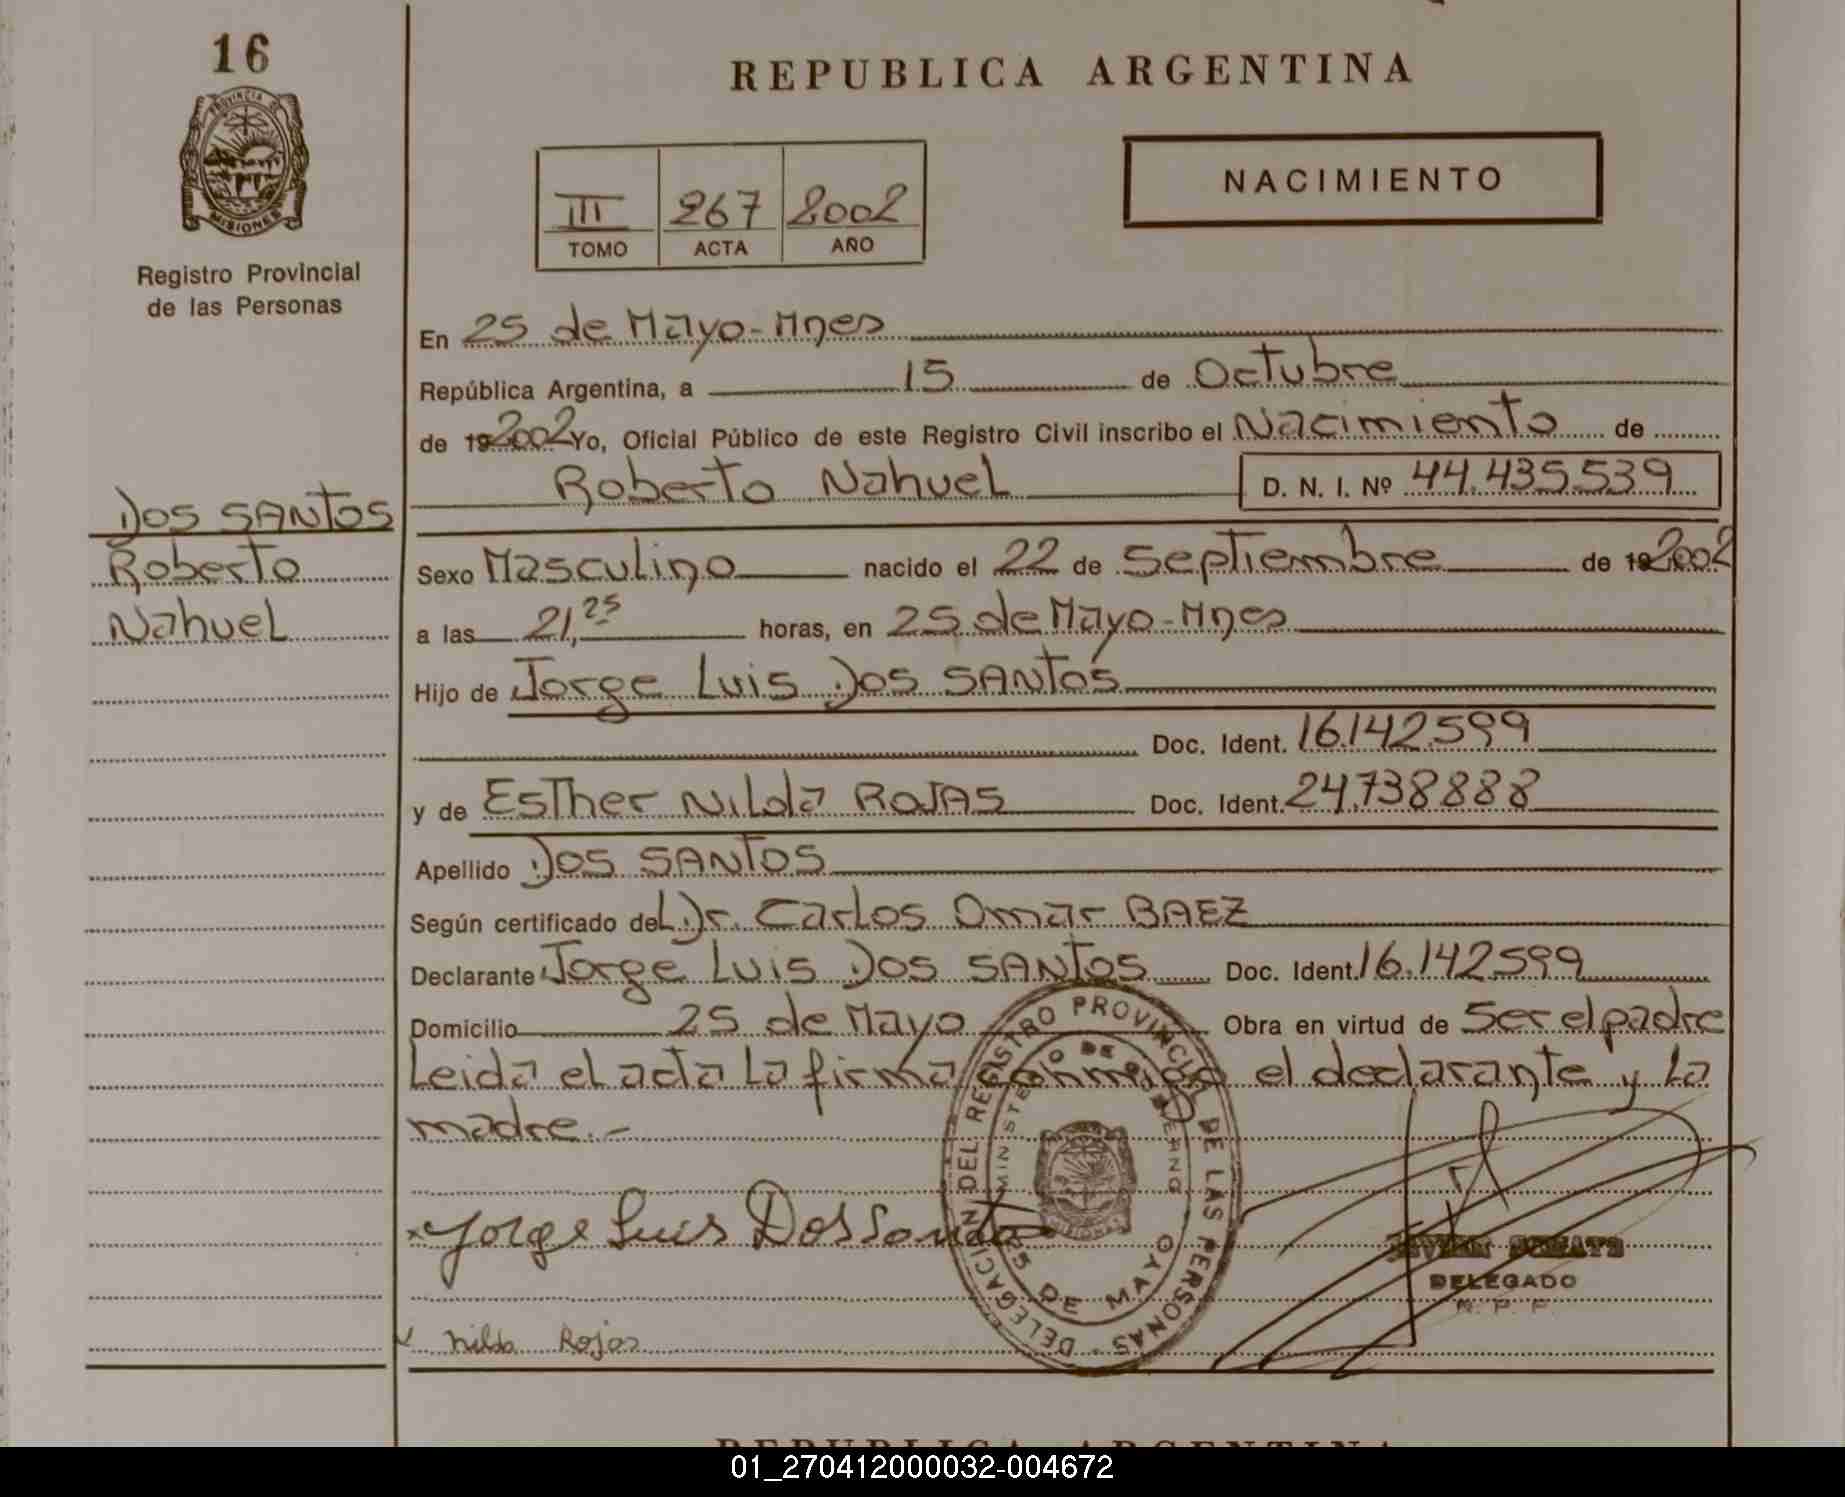 16
PROVINCIA DE
MISIONES
Registro Provincial
de las Personas
DOS SANTOS
Roberto
Nahuel
REPUBLICA ARGENTINA
III 267 2002
TOMO ACTA AÑO
NACIMIENTO
En 25 de Mayo-Mnes
República Argentina, a 15 de Octubre
de 192002 Yo, Oficial Público de este Registro Civil inscribo el Nacimiento de
Roberto Nahuel D. N. I. Nº 44.435.539
Sexo Masculino nacido el 22 de Septiembre de 192002
a las 21,25 horas, en 25 de Mayo-Mnes
Hijo de Jorge Luis Dos SANTOS
Doc. Ident. 16.142.599
y de Esther Nilda ROJAS Doc. Ident. 24.738888
Apellido DOS SANTOS
Según certificado del Dr. Carlos Omar BAEZ
Declarante Jorge Luis Dos SANTOS Doc. Ident. 16.142599
Domicilio 25 de Mayo Obra en virtud de Ser el padre
Leida el acta la firma conmigo el declarante y la
madre.-
DELEGACION DEL REGISTRO PROVINCIAL DE LAS PERSONAS
MINISTERIO DE GOBIERNO
MISIONES
25 DE MAYO
x Jorge Luis Dos Santos
DELEGADO
Nilda Rojas
REPUBLICA ARGENTINA
01_270412000032-004672